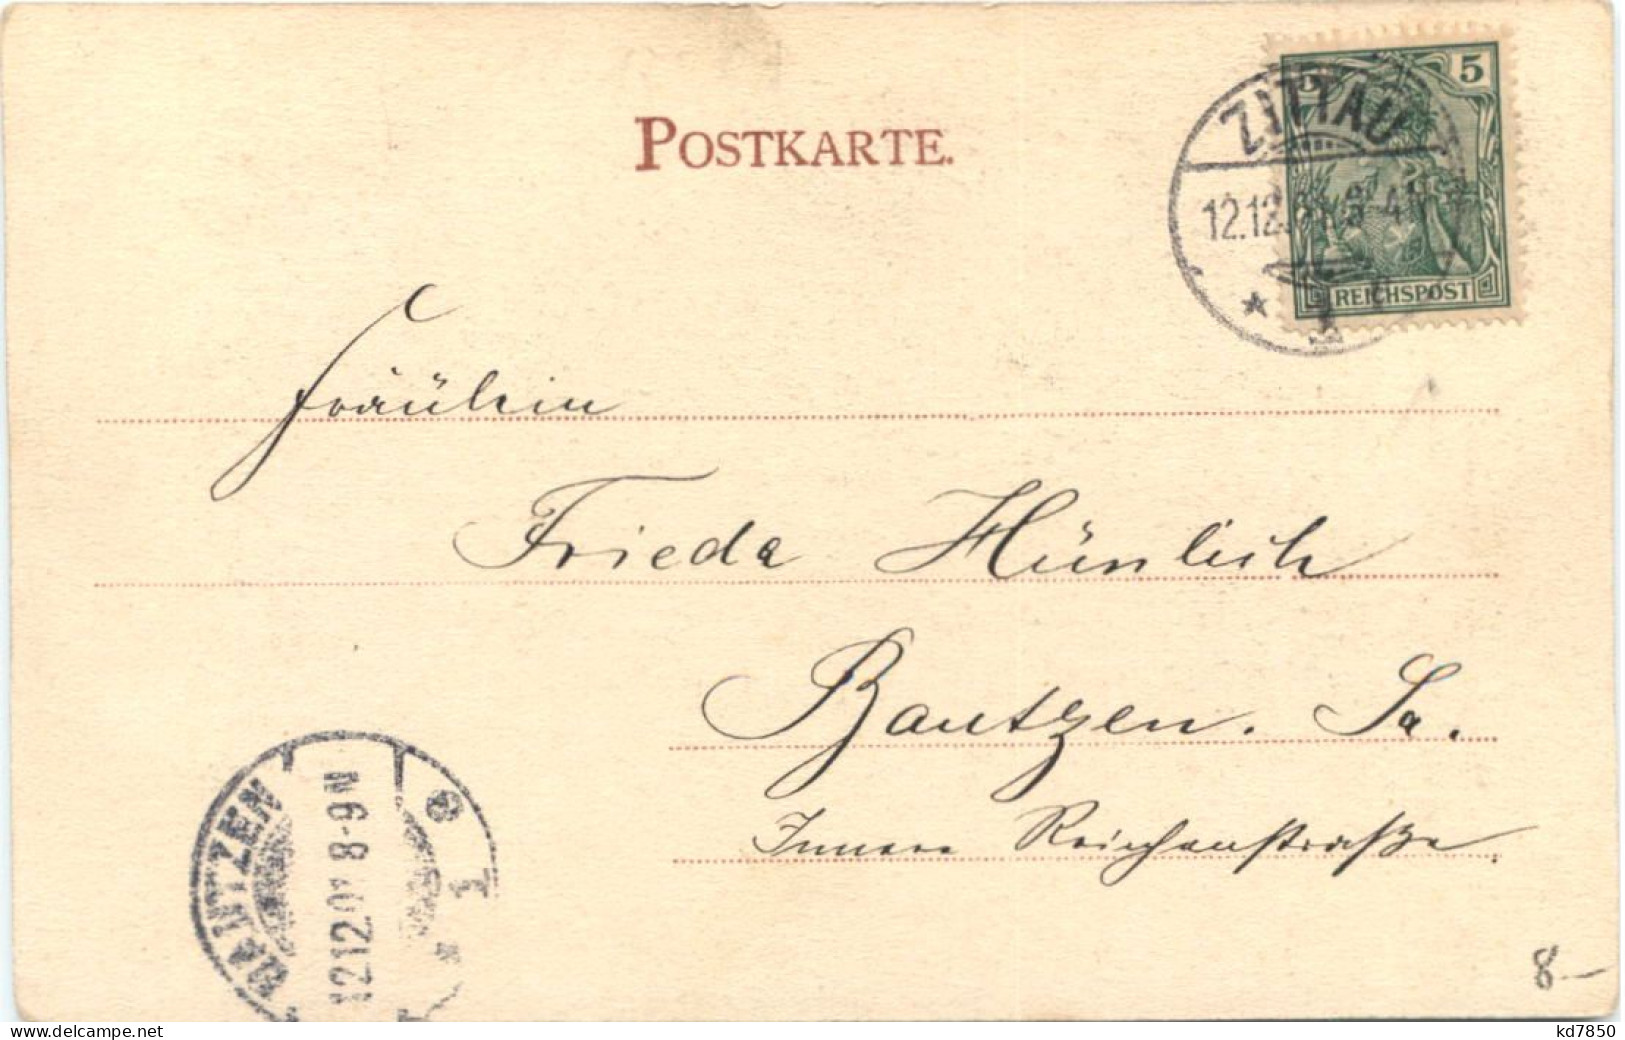 POSTKARTE.
5 5
REICHSPOST
ZITTAU
12.12. 3-4N
* 1
Fräulein
Frieda Hünlich
Bautzen. Sa.
Innere Reichenstraße.
BAUTZEN
12.12.01 8-9N
1 *
8-
kd7850